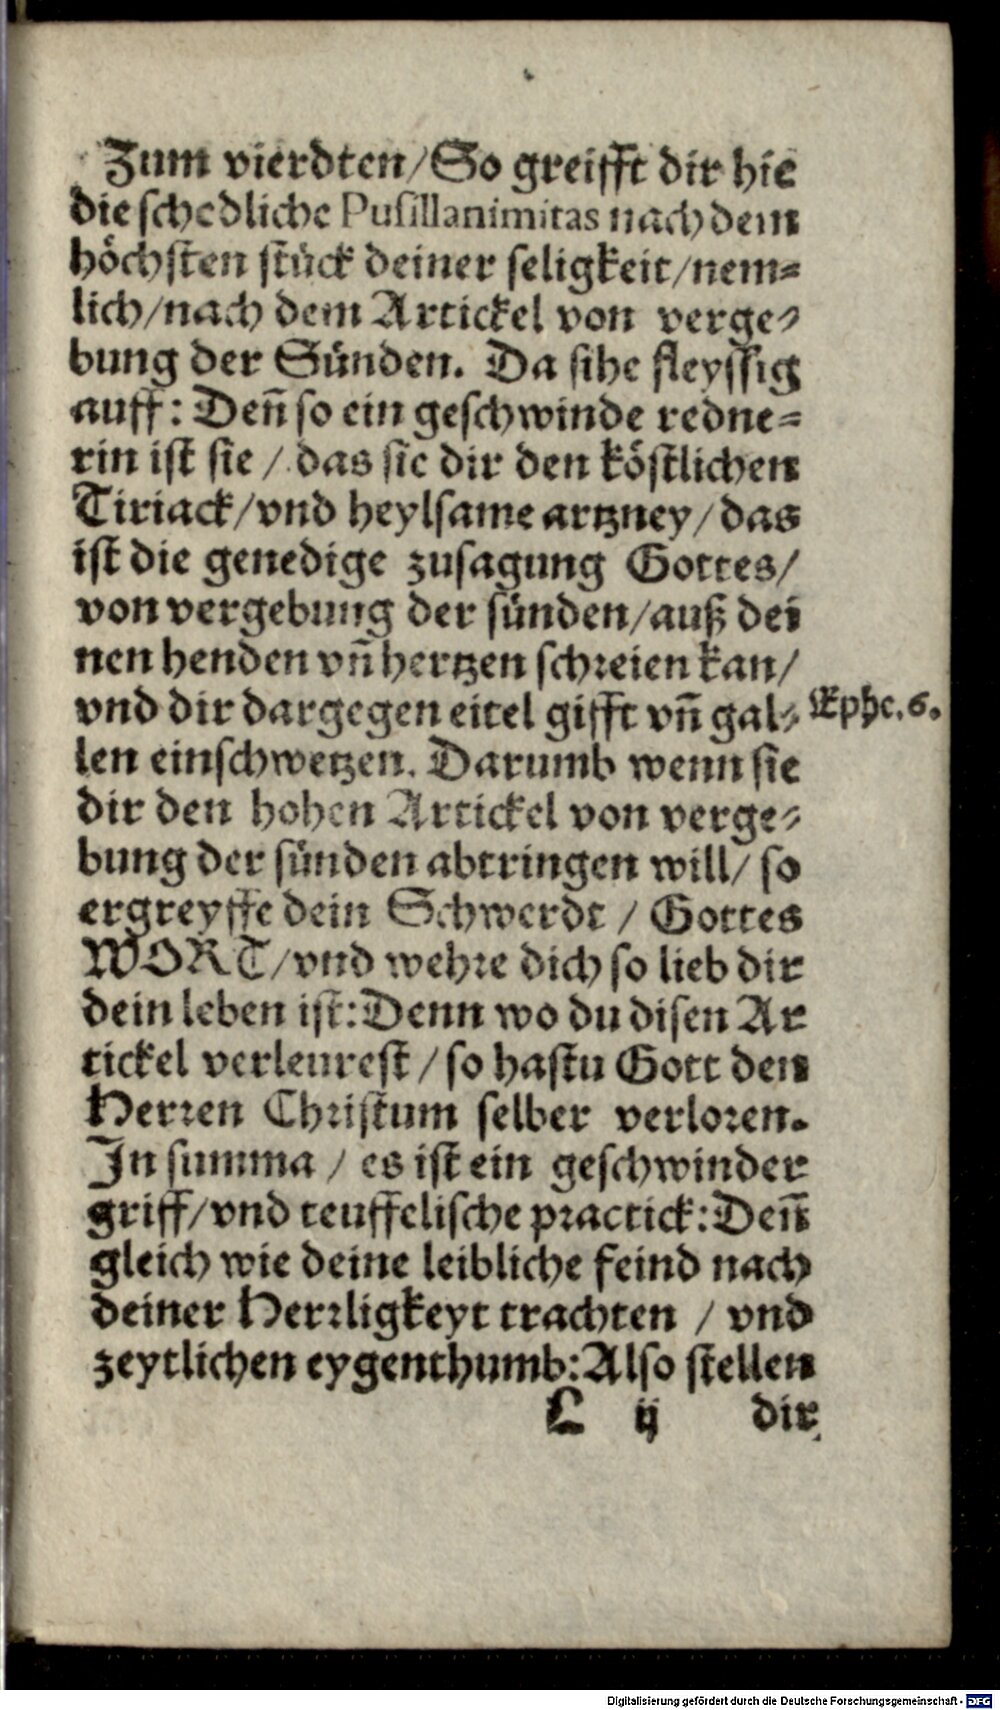 Zum vierdten/So greifft dir hie
die schedliche Pusillanimitas nach dem
höchsten stück deiner seligkeit/nem-
lich/nach dem Artickel von verge-
bung der Sünden. Da sihe fleyssig
auff: Deñ so ein geschwinde redne-
rin ist sie / das sie dir den köstlichen
Tiriack/vnd heylsame artzney/das
ist die genedige zusagung Gottes/
von vergebung der sünden/auß dei
nen henden vñ hertzen schreien kan/
vnd dir dargegen eitel gifft vñ gal- Ephe. 6.
len einschwetzen. Darumb wenn sie
dir den hohen Artickel von verge-
bung der sünden abtringen will/ so
ergreyffe dein Schwerdt / Gottes
WORT/vnd wehre dich so lieb dir
dein leben ist: Denn wo du disen Ar
tickel verleurest / so hastu Gott den
Herren Christum selber verloren.
In summa / es ist ein geschwinder
griff/vnd teuffelische practick: Deñ
gleich wie deine leibliche feind nach
deiner Herrligkeyt trachten / vnd
zeytlichen eygenthumb: Also stellen
L ij dir
Digitalisierung gefördert durch die Deutsche Forschungsgemeinschaft - DFG